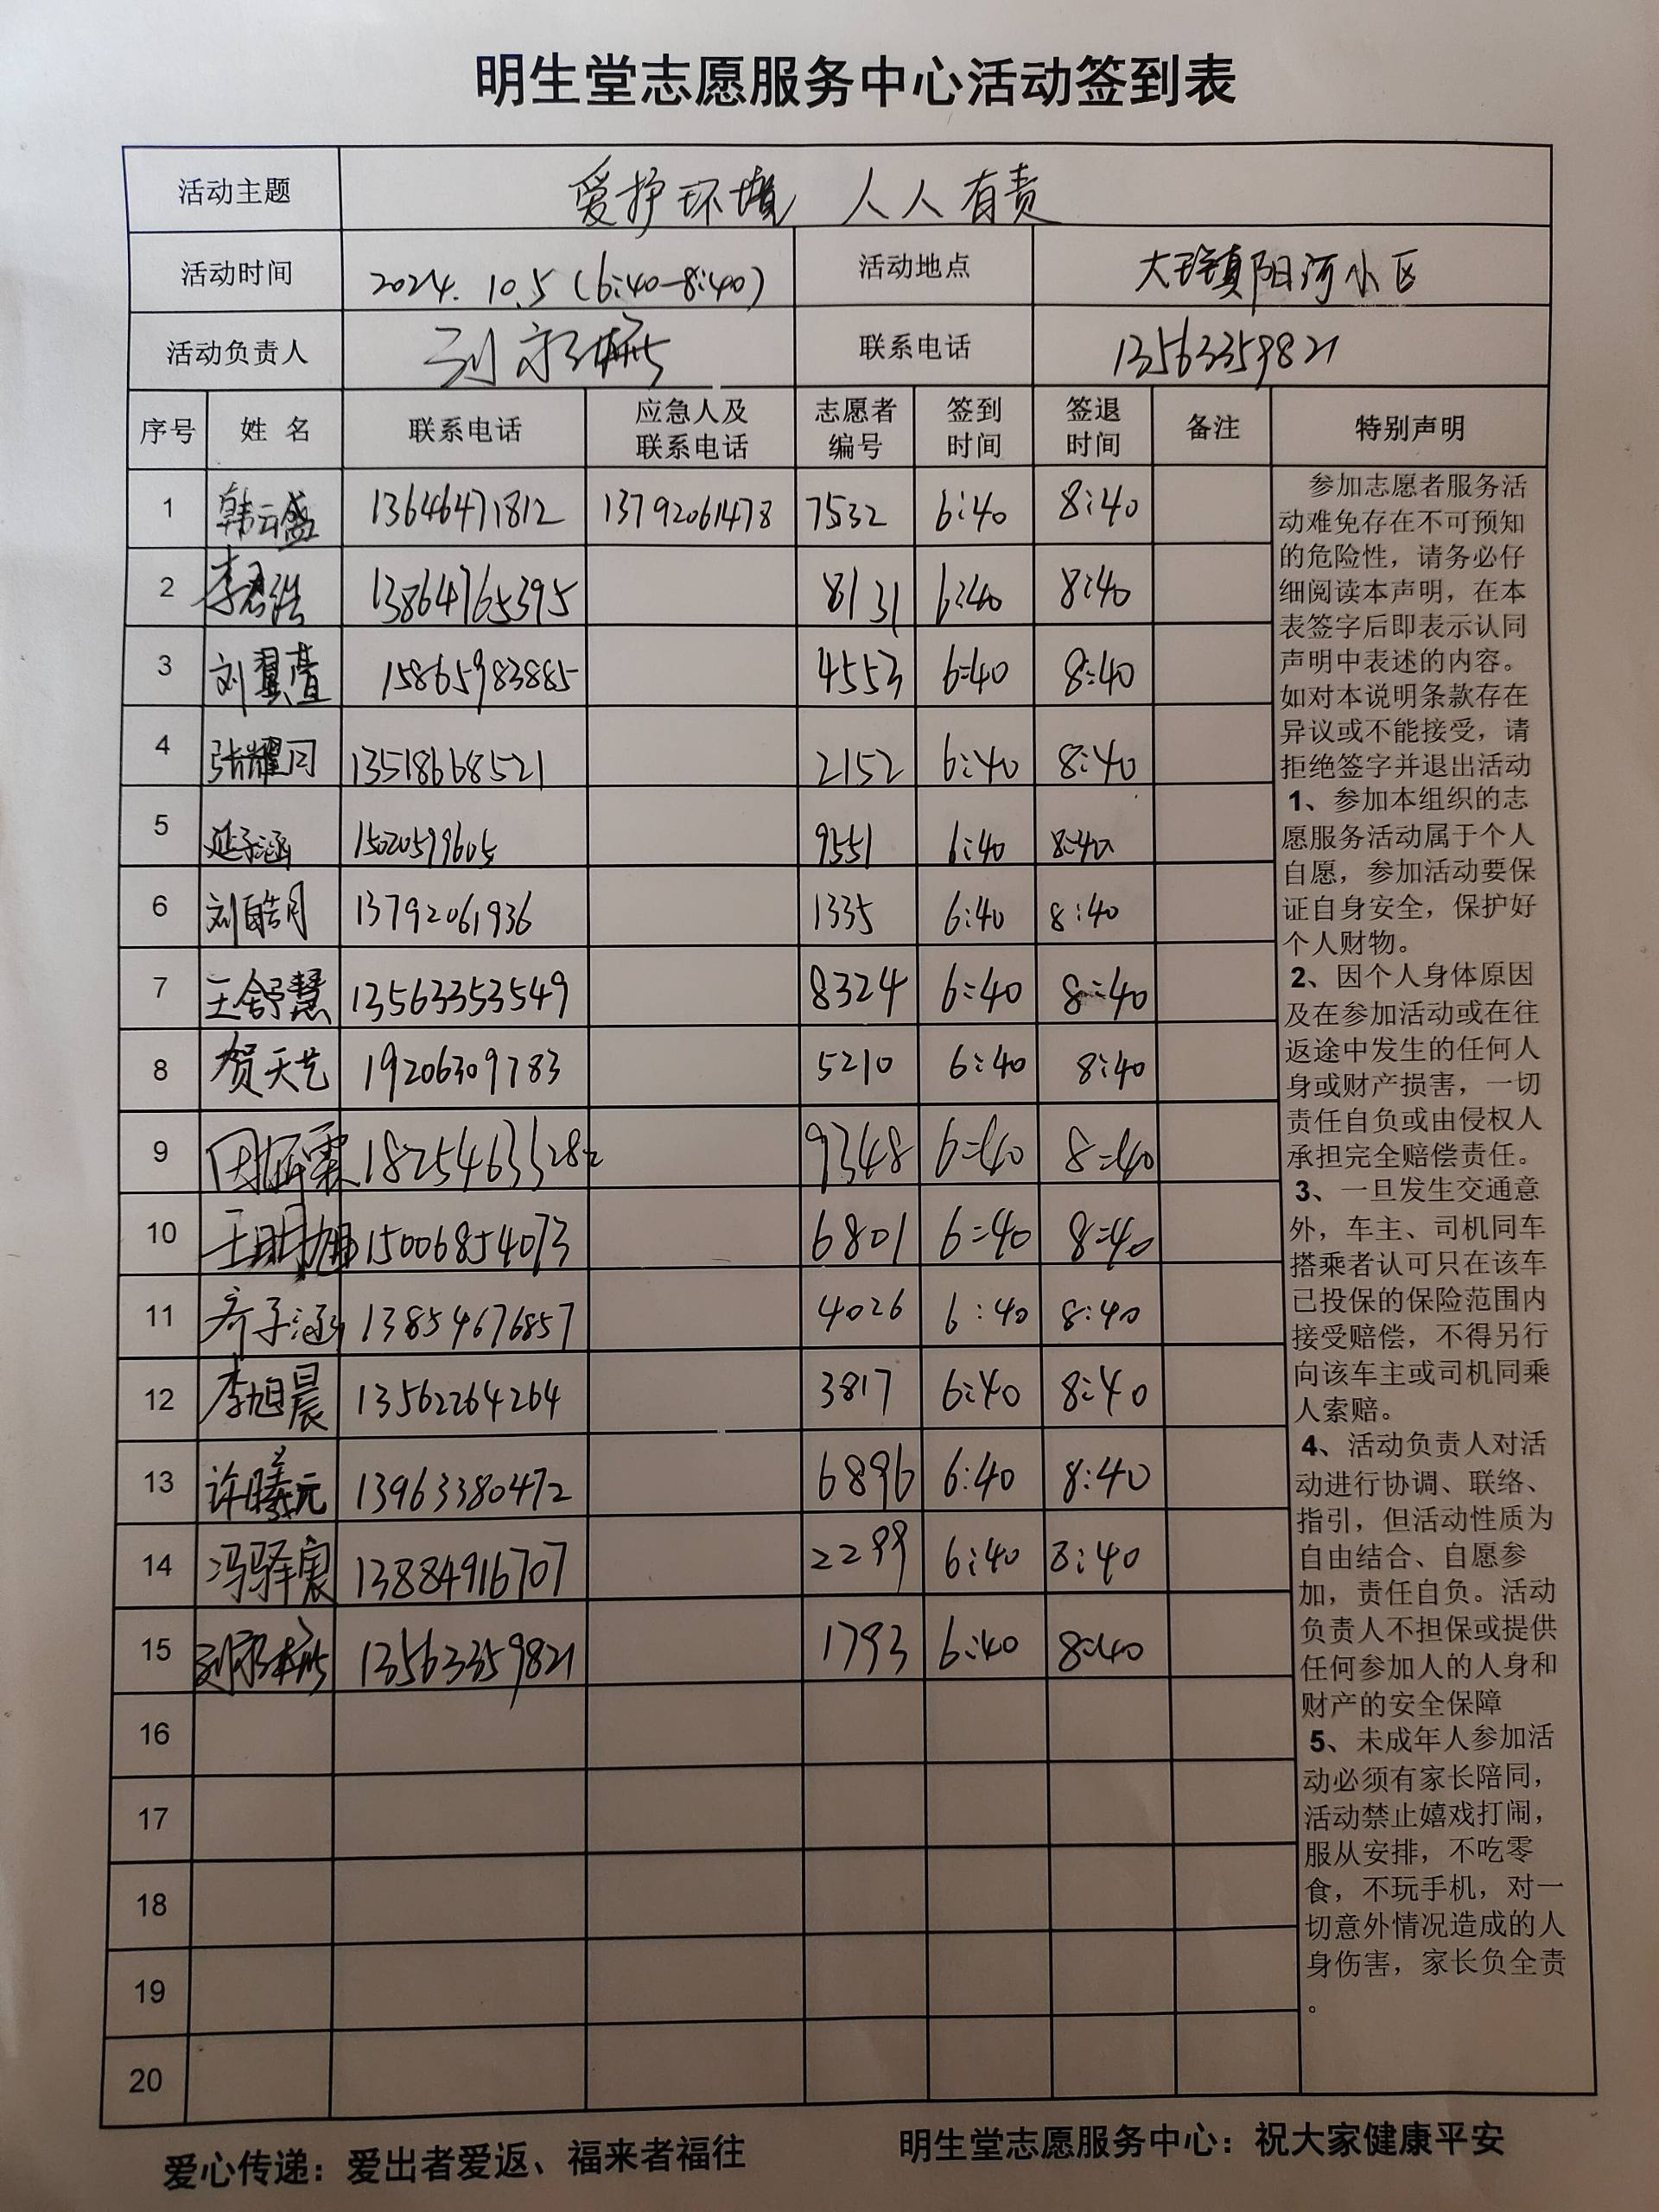 明生堂志愿服务中心活动签到表
活动主题 爱护环境 人人有责
活动时间 2024.10.5(6:40-8:40) 活动地点 大 镇阳河小区
活动负责人 刘 联系电话 13563359821
序号 姓名 联系电话 应急人及联系电话 志愿者编号 签到时间 签退时间 备注 特别声明
1 韩云盛 13646471812 13792061478 7532 6:40 8:40
2 李君浩 13864765395 8131 6:40 8:40
3 刘 15865983885 4553 6:40 8:40
4 张耀 13518668521 2152 6:40 8:40
5 延子涵 15020579605 9551 6:40 8:40
6 刘皓月 13792061936 1335 6:40 8:40
7 王舒慧 13563353549 8324 6:40 8:40
8 贺天艺 19206309783 5210 6:40 8:40
9 18254633282 9348 6:40 8:40
10 王明旭 15006854073 6801 6:40 8:40
11 齐子涵 13854676857 4026 6:40 8:40
12 李旭晨 13562264264 3817 6:40 8:40
13 许曦元 13963380472 6896 6:40 8:40
14 冯驿寒 13884916707 2299 6:40 8:40
15 刘 13563359821 1793 6:40 8:40
16
17
18
19
20
参加志愿者服务活
动难免存在不可预知
的危险性，请务必仔
细阅读本声明，在本
表签字后即表示认同
声明中表述的内容。
如对本说明条款存在
异议或不能接受，请
拒绝签字并退出活动
1、参加本组织的志
愿服务活动属于个人
自愿，参加活动要保
证自身安全，保护好
个人财物。
2、因个人身体原因
及在参加活动或在往
返途中发生的任何人
身或财产损害，一切
责任自负或由侵权人
承担完全赔偿责任。
3、一旦发生交通意
外，车主、司机同车
搭乘者认可只在该车
已投保的保险范围内
接受赔偿，不得另行
向该车主或司机同乘
人索赔。
4、活动负责人对活
动进行协调、联络、
指引，但活动性质为
自由结合、自愿参
加，责任自负。活动
负责人不担保或提供
任何参加人的人身和
财产的安全保障
5、未成年人参加活
动必须有家长陪同，
活动禁止嬉戏打闹，
服从安排，不吃零
食，不玩手机，对一
切意外情况造成的人
身伤害，家长负全责
。
爱心传递：爱出者爱返、福来者福往 明生堂志愿服务中心：祝大家健康平安